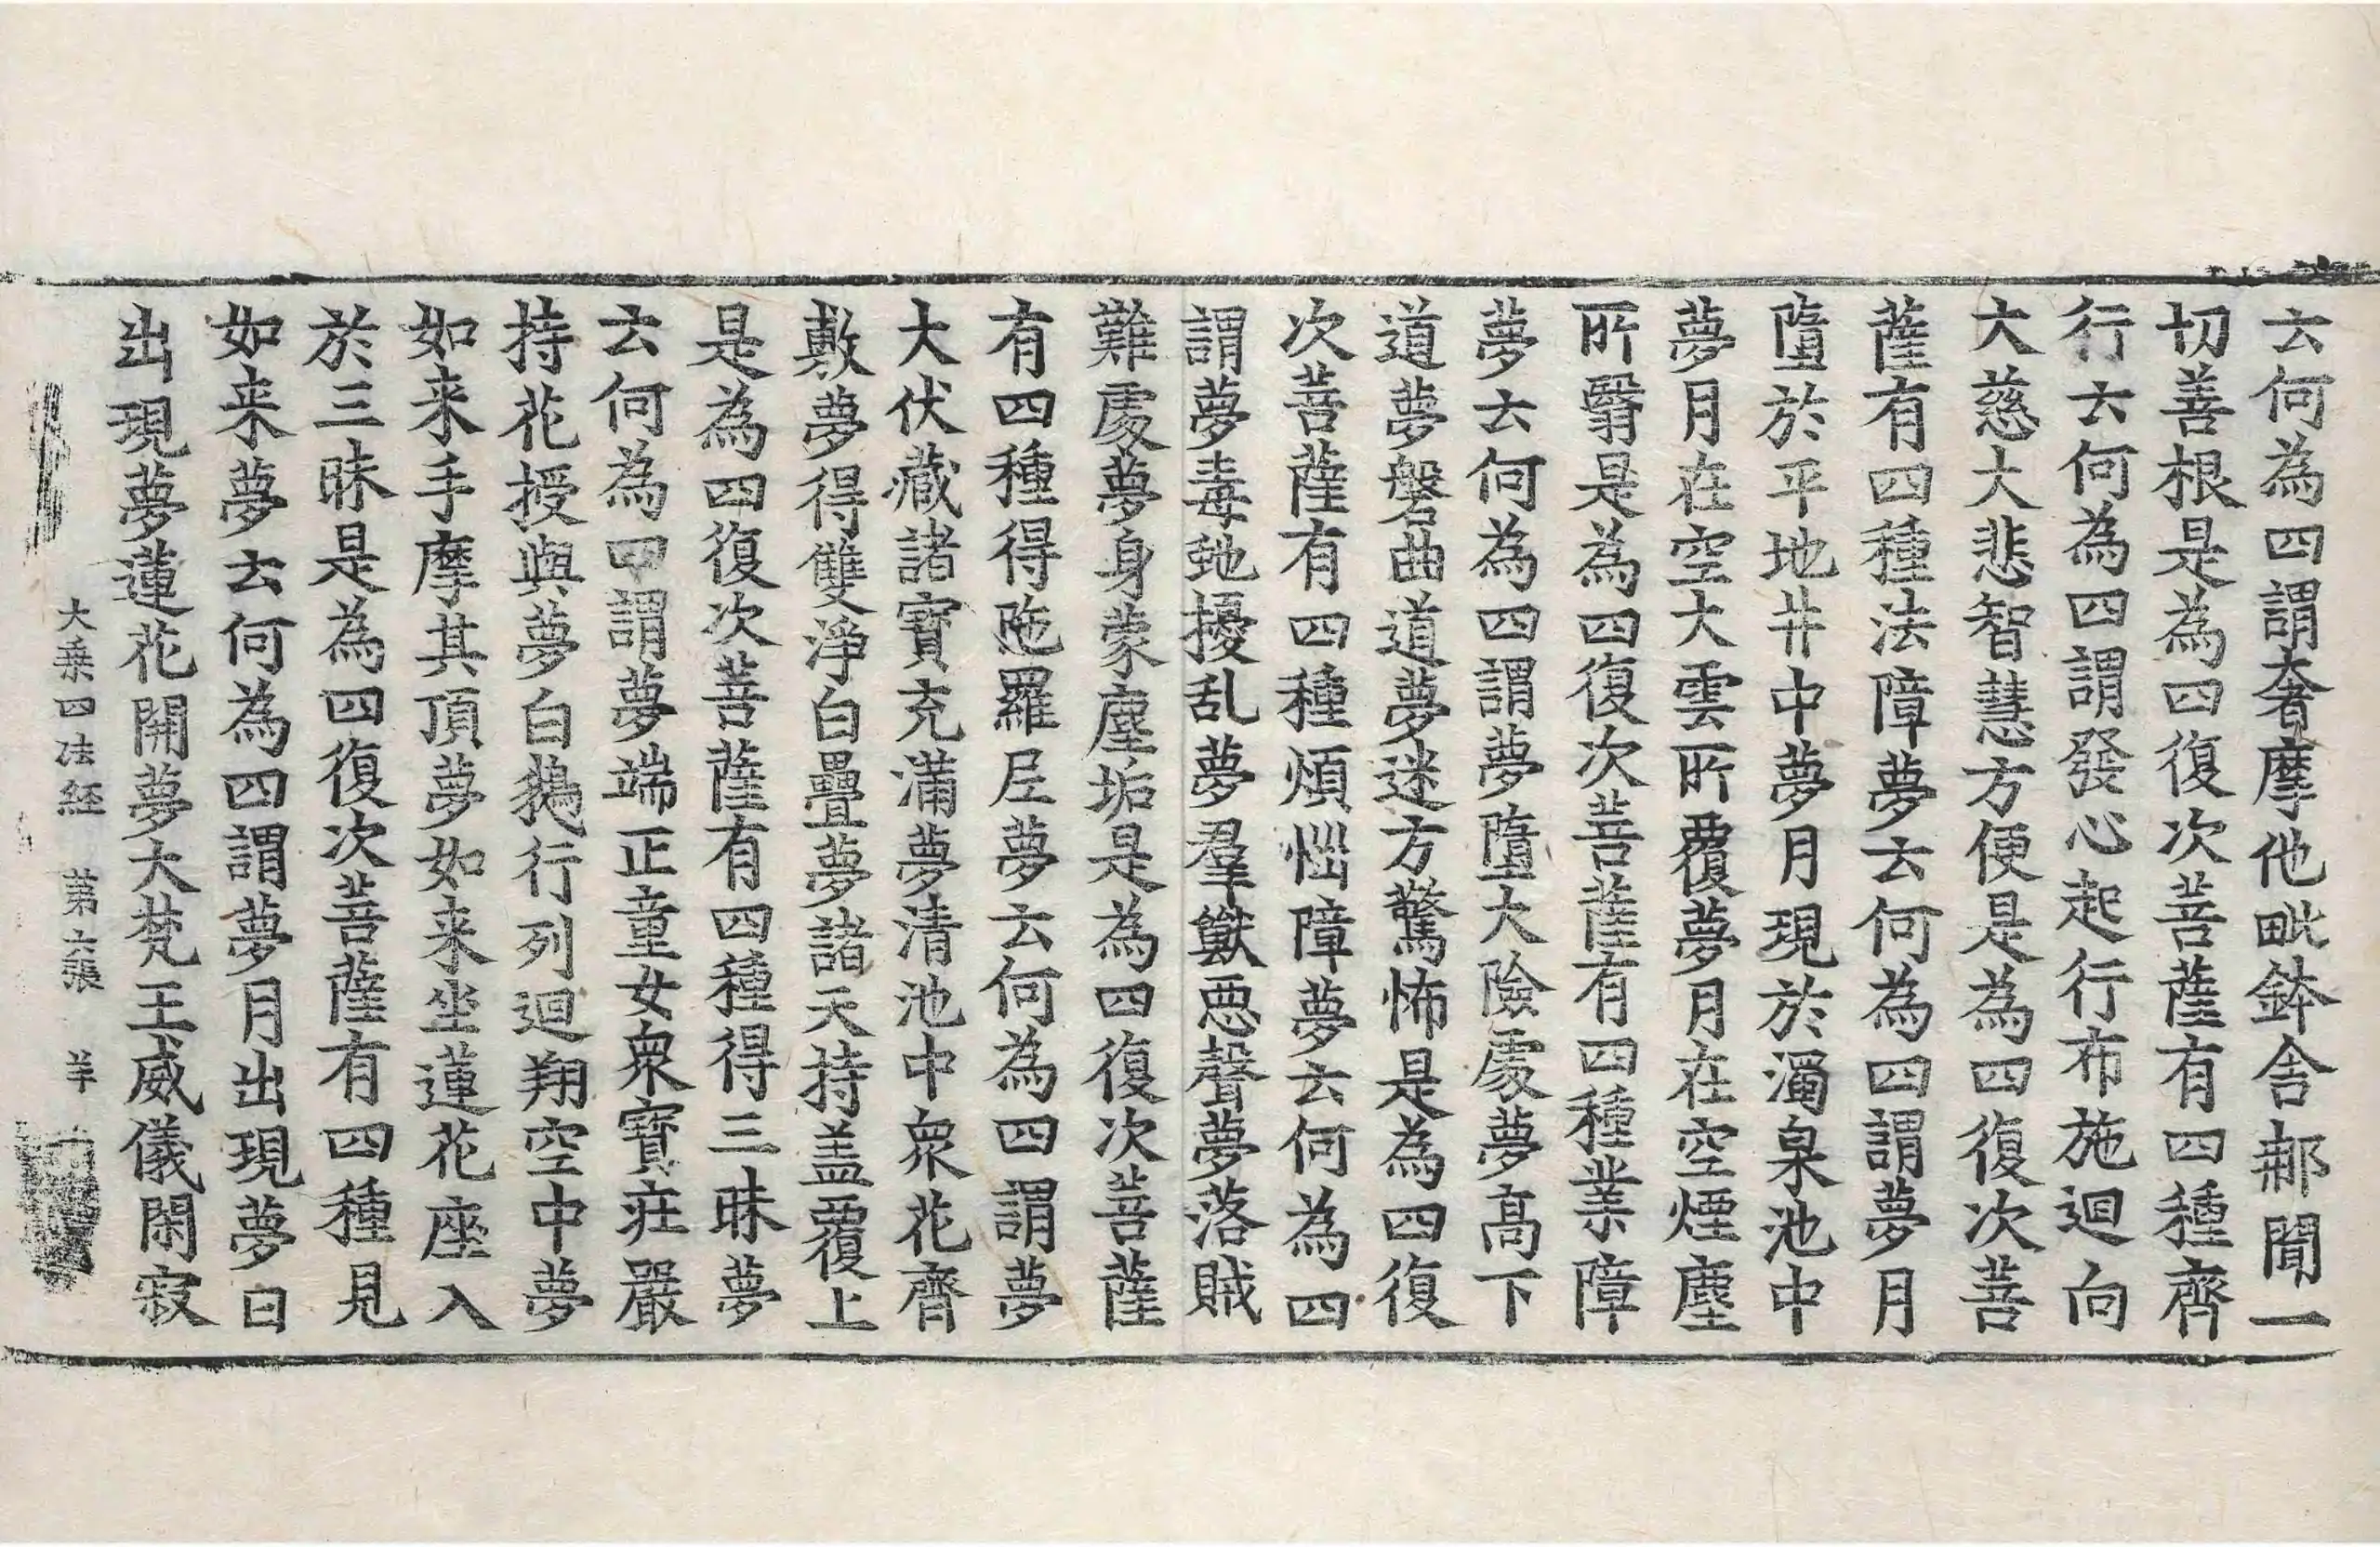 云何為四謂奢摩他毗鉢舍那聞一
切善根是為四復次菩薩有四種齊
行云何為四謂發心起行布施迴向
大慈大悲智慧方便是為四復次菩
薩有四種法障夢云何為四謂夢月
墮於平地井中夢月現於濁泉池中
夢月在空大雲所覆夢月在空煙塵
所翳是為四復次菩薩有四種業障
夢云何為四謂夢墮大險處夢高下
道夢磐曲道夢迷方驚怖是為四復
次菩薩有四種煩惱障夢云何為四
謂夢毒虵擾乱夢羣獸惡聲夢落賊
難處夢身蒙塵垢是為四復次菩薩
有四種得陁羅尼夢云何為四謂夢
大伏藏諸寶充滿夢清池中衆花齊
敷夢得雙淨白疊夢諸天持盖覆上
是為四復次菩薩有四種得三昧夢
云何為四謂夢端正童女衆寶莊嚴
持花授與夢白鵝行列迴翔空中夢
如来手摩其頂夢如来坐蓮花座入
於三昧是為四復次菩薩有四種見
如来夢云何為四謂夢月出現夢日
出現夢蓮花開夢大梵王威儀閑寂
大乗四法經 第六張 羊